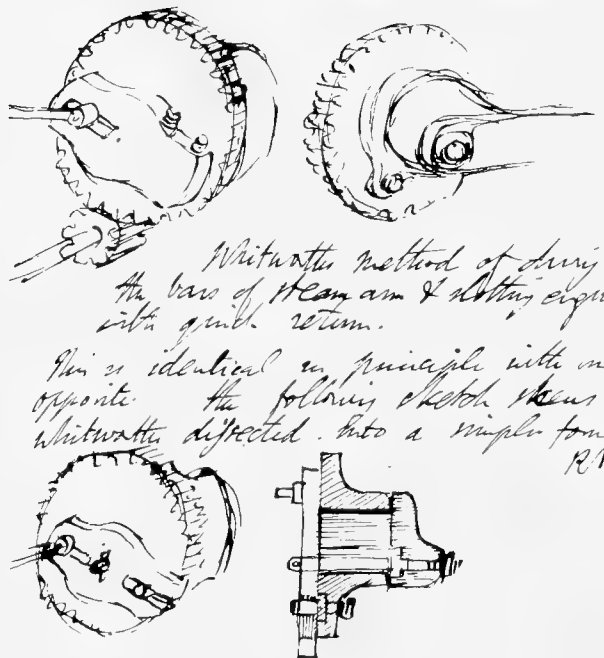 Whitworths method of driving
the bars of steam arm & slotting engin
with quick return.
This is identical in principle with m
opposite. The following sketch shews
Whitworths dissected into a simple form
R.